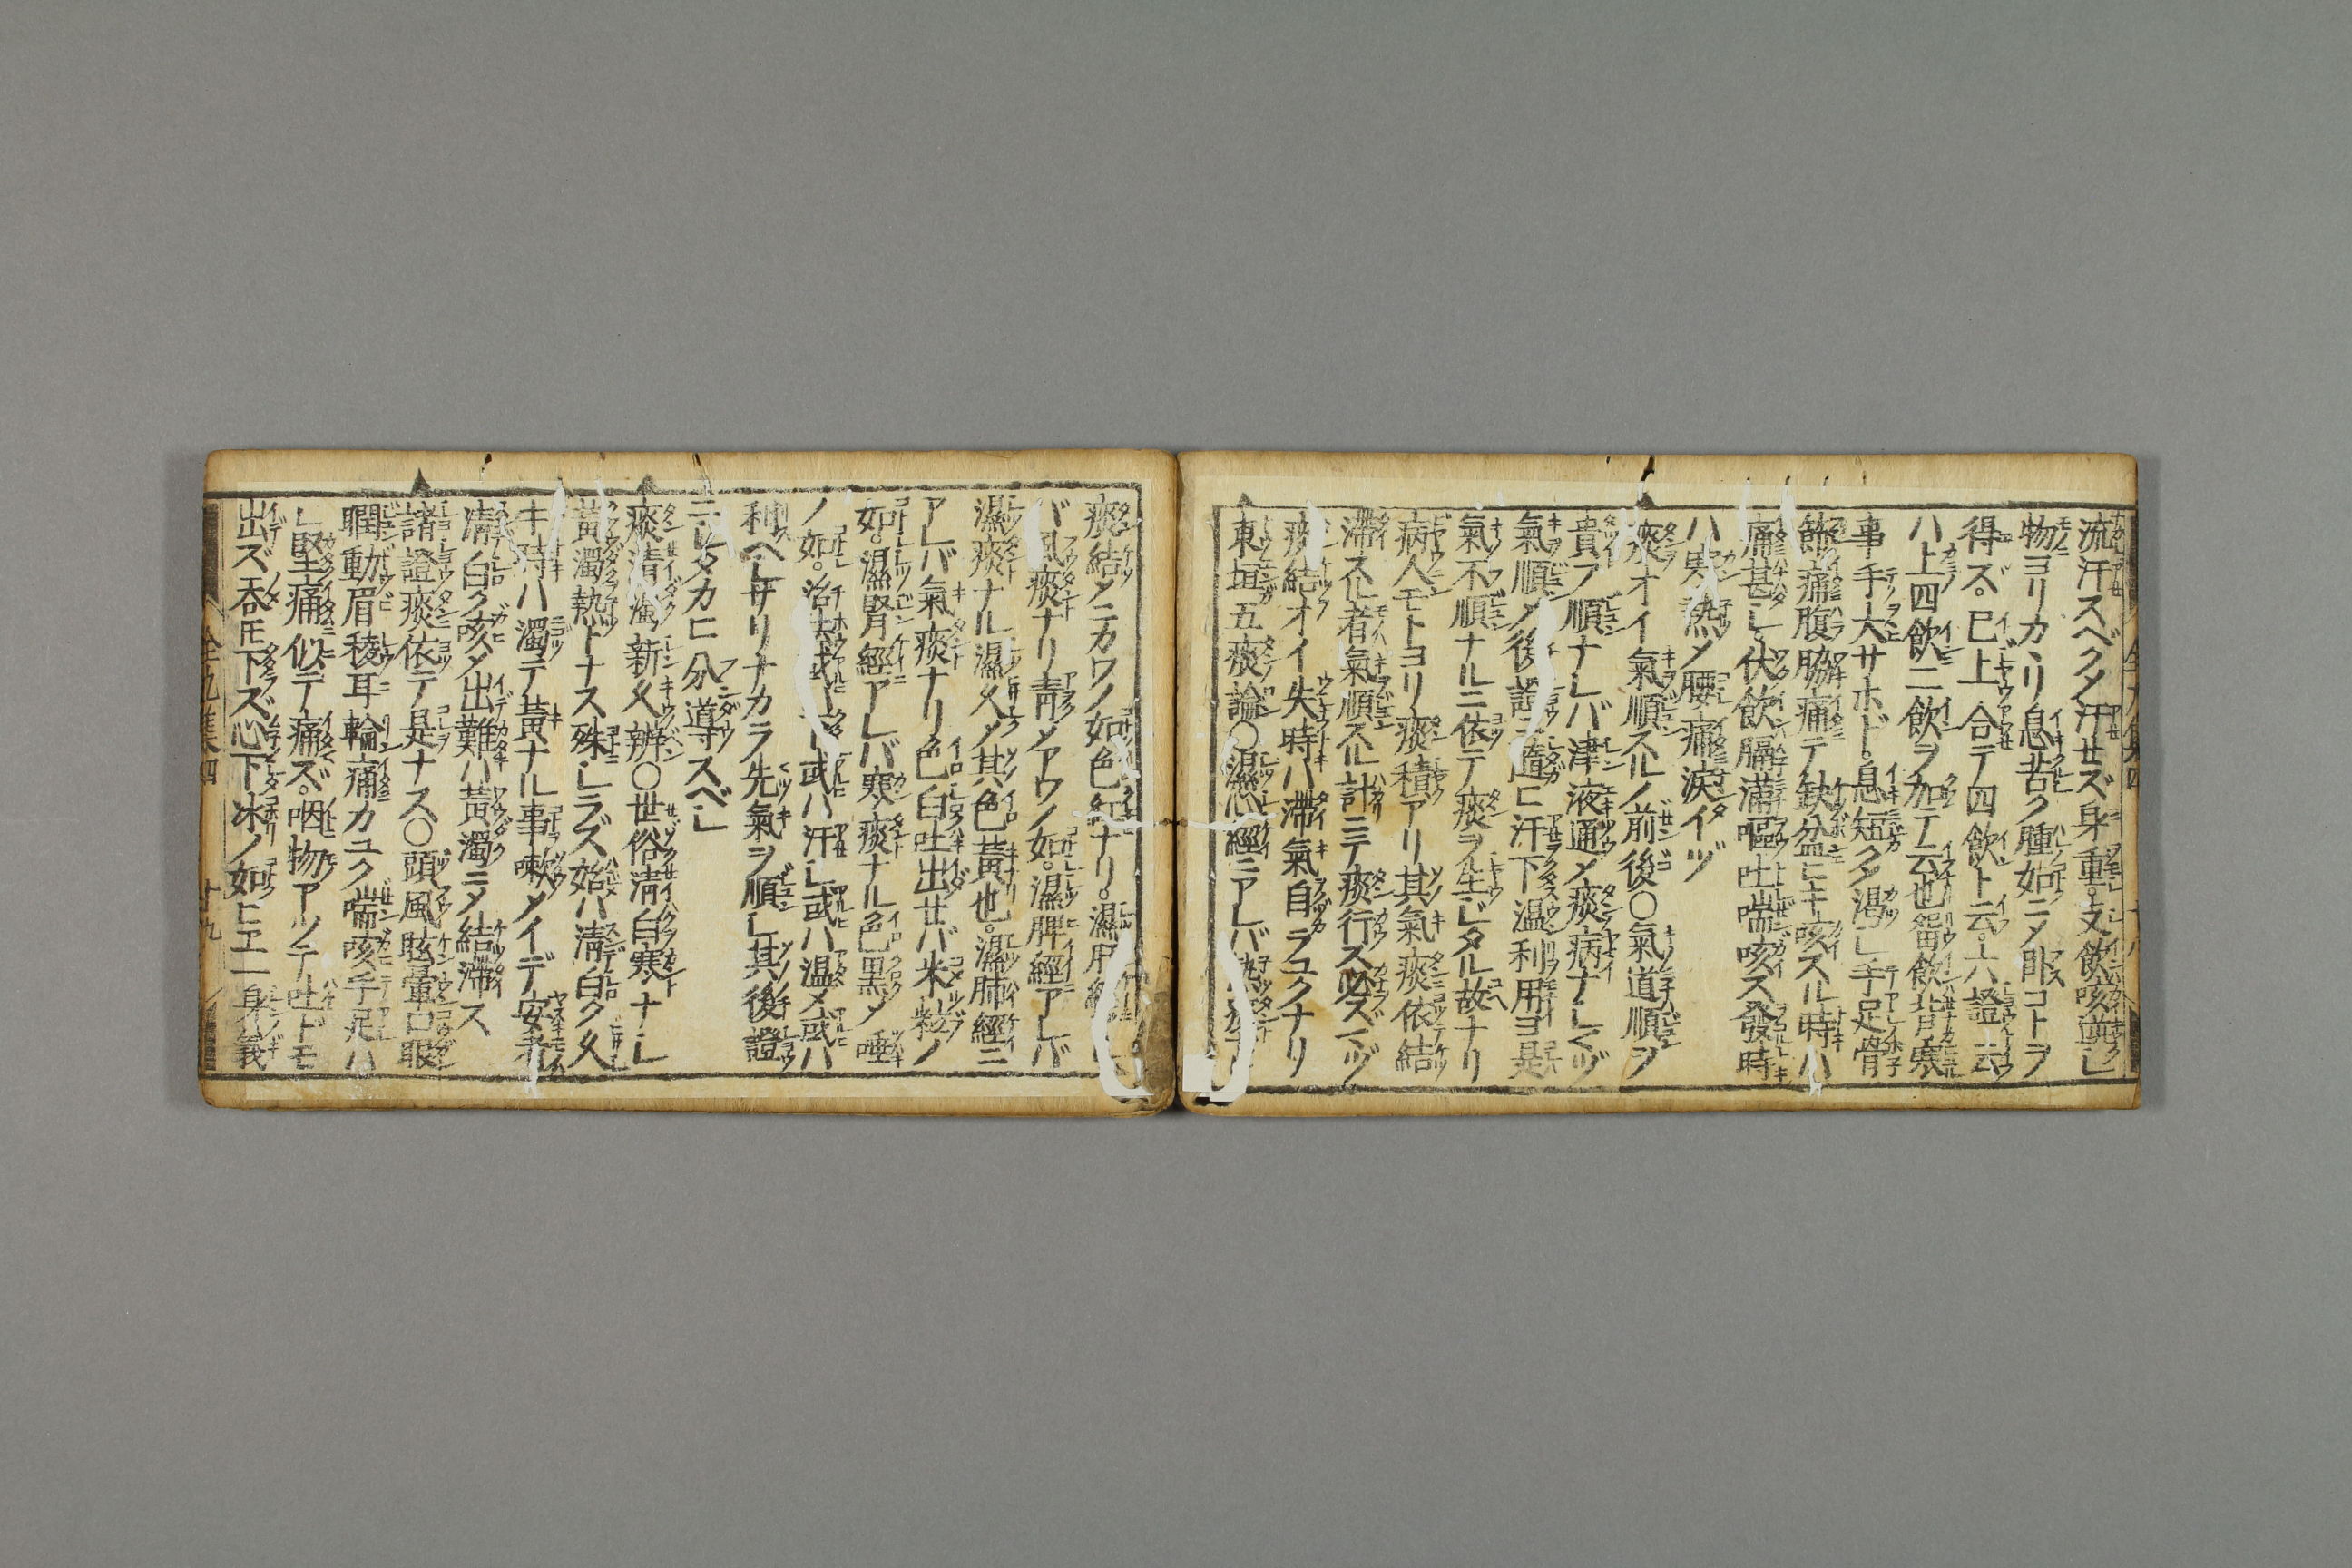 流汗スベクメ汗せズ身重。支飲咳逆シ
物ヨリカヽリ息苦ク腫如ニメ臥コトヲ
得ズ。已上合テ四飲ト云。六證云
ハ上四飲二飲ヲ加エ云也畄飲背寒
事手大サホド。息短クメ渇シ手足骨
節痛腹脇痛テ缺盆ヒキ咳スル時ハ
痛甚シ。伏飲膈滿嘔吐喘咳ス發時
ハ寒熱メ腰痛淚イヅ
痰オイ氣順スルノ前後〇氣道順ヲ
貴ア順ナレバ津液通メ痰病ナシマヅ
氣順メ後 ニ隨ヒ汗下温利用ヨ是
氣不順ナルニ依テ痰ヲ生ジタル故ナリ
病人モトヨリ痰積アリ其氣痰依結
滯スル者氣順スル計ニテ痰行ズ必ズマヅ
痰結オイ失時ハ滯氣自ラユクナリ
東垣五痰論〇濕心經ニアレバ熱痰
痰結メニカワノ如色紅ナリ。濕肝經
バ風痰ナリ靑メアワノ如。濕脾經アレバ
濕痰ナル濕久メ其色黃也。濕肺經ニ
アレバ氣痰ナリ色白吐出せバ米粒ノ
如。濕腎經アレバ寒痰ナル色黒メ唾
ノ如。治法 或ハ汗シ或ハ温メ或ハ
利ヘシサリナカラ先氣ヲ順シ其後證
ニシタカヒ分導スベシ
痰清濁新久辨〇世俗清白寒ナシ
黃濁熱トナス殊シラズ始ハ清白ク久
キ時ハ濁テ黃ナル事嗽メイデ安
清白ク咳メ出難ハ黃濁ニメ結滯ス
諸證痰依テ是ナス〇頭風眩暈目眼
瞤動眉稜耳輪痛カユク喘咳手足ハ
レ堅痛似テ痛ズ。咽物アツテ吐トモ
出ズ呑トモ下ズ心下冰ノ如ヒエ一身